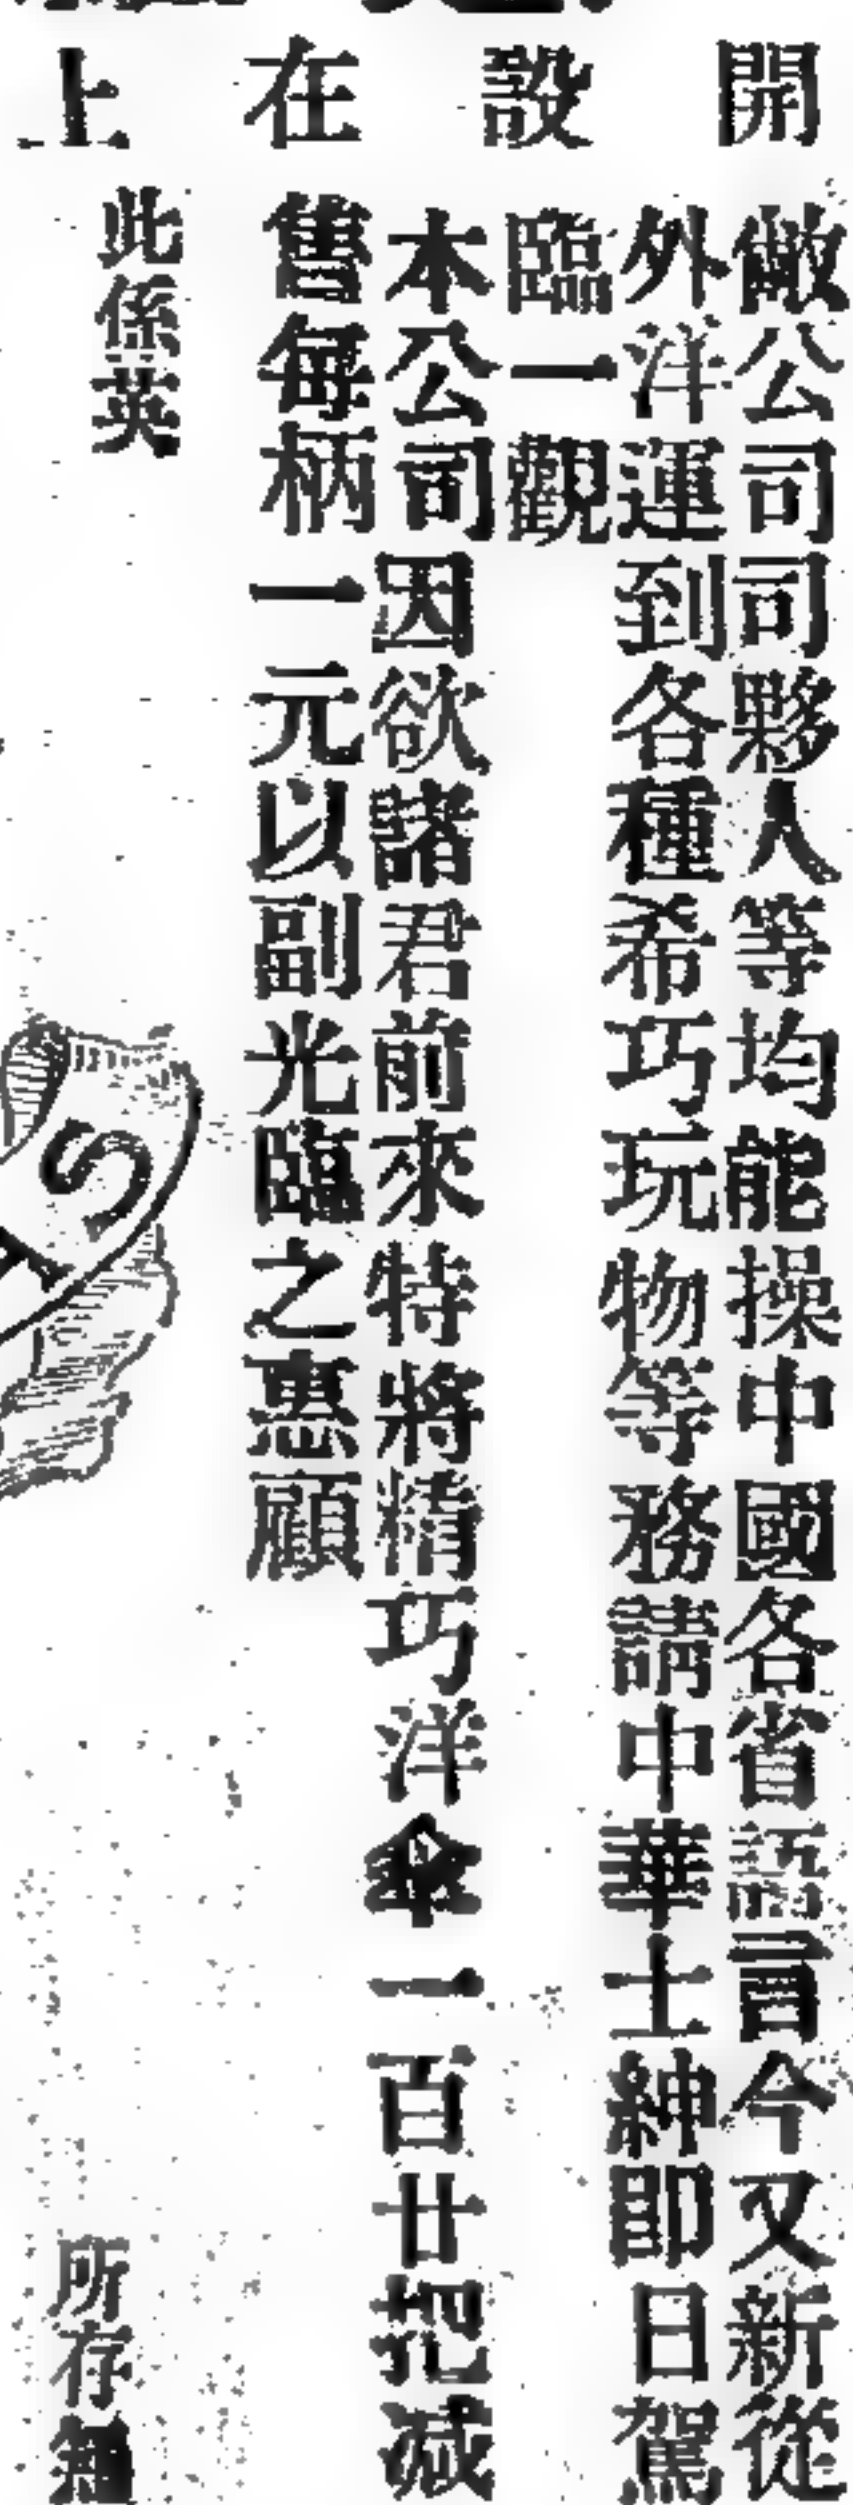 開設在上
僘公司司夥人等均能操中國各省語言今又新從
外洋運到各種希巧玩物等務請中華士紳即日駕
臨一觀
本公司因欲諸君前來特將精巧洋傘一百廿把减
售每柄一元以副光臨之惠顧
此係英
所存